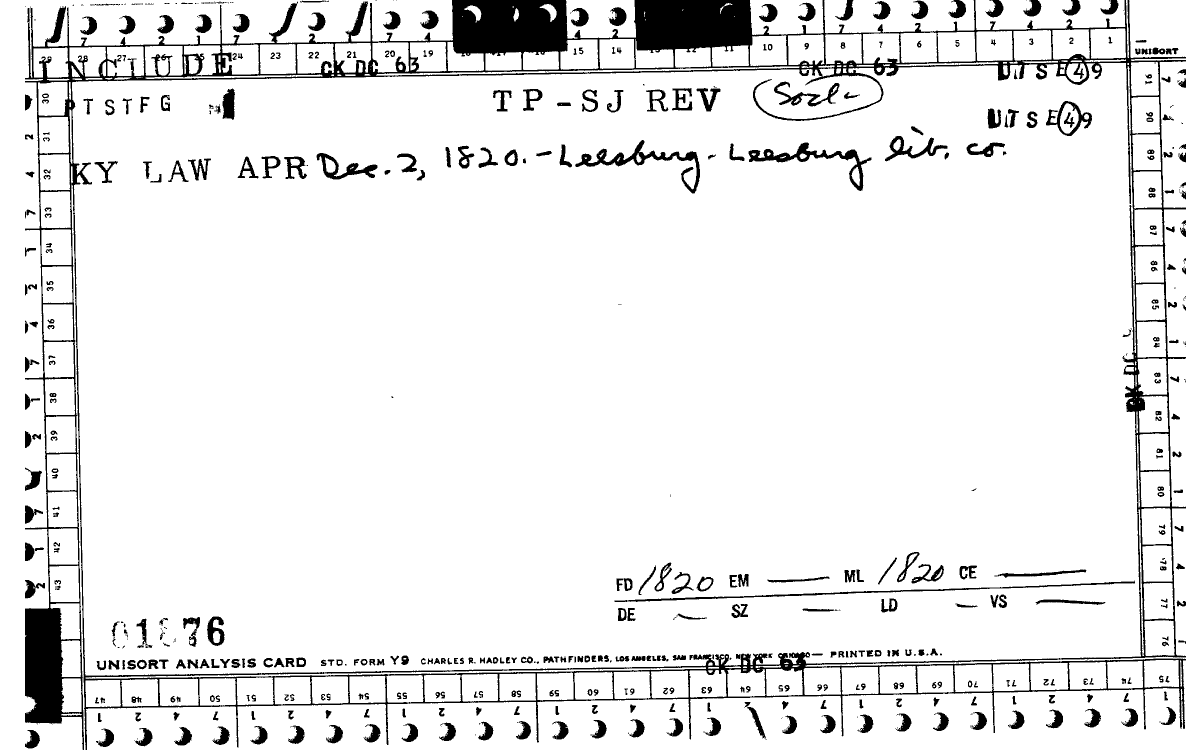 7 4 2 1 7 2 1 7 4 4 2 2 1 7 4 2 1 7 4 2 1
29 28 27 26 25 24 23 22 21 20 19 15 14 10 9 8 7 6 5 4 3 2 1
UNISORT
INCLUDE CK DC 63 CK DC 63 UT S E 49
PTSTFG TP-SJ REV
UT S E 49
KY LAW APR Dec. 2, 1820. - Leesburg - Leesburg lib. co.
30 31 32 33 34 35 36 37 38 39 40 41 42 43
91 90 89 88 87 86 85 84 83 82 81 80 79 78 77 76
FD 1820 EM — ML 1820 CE —
DE — SZ — LD — VS —
UNISORT ANALYSIS CARD STD. FORM Y9 CHARLES R. HADLEY CO., PATHFINDERS, LOS ANGELES, SAN FRANCISCO, NEW YORK CHICAGO — PRINTED IN U.S.A.
CK DC 63
47 48 49 50 51 52 53 54 55 56 57 58 59 60 61 62 63 64 65 66 67 68 69 70 71 72 73 74 75
1 2 4 7 1 2 4 7 1 2 4 7 1 2 4 7 1 2 4 7 1 2 4 7 1 2 4 7 1